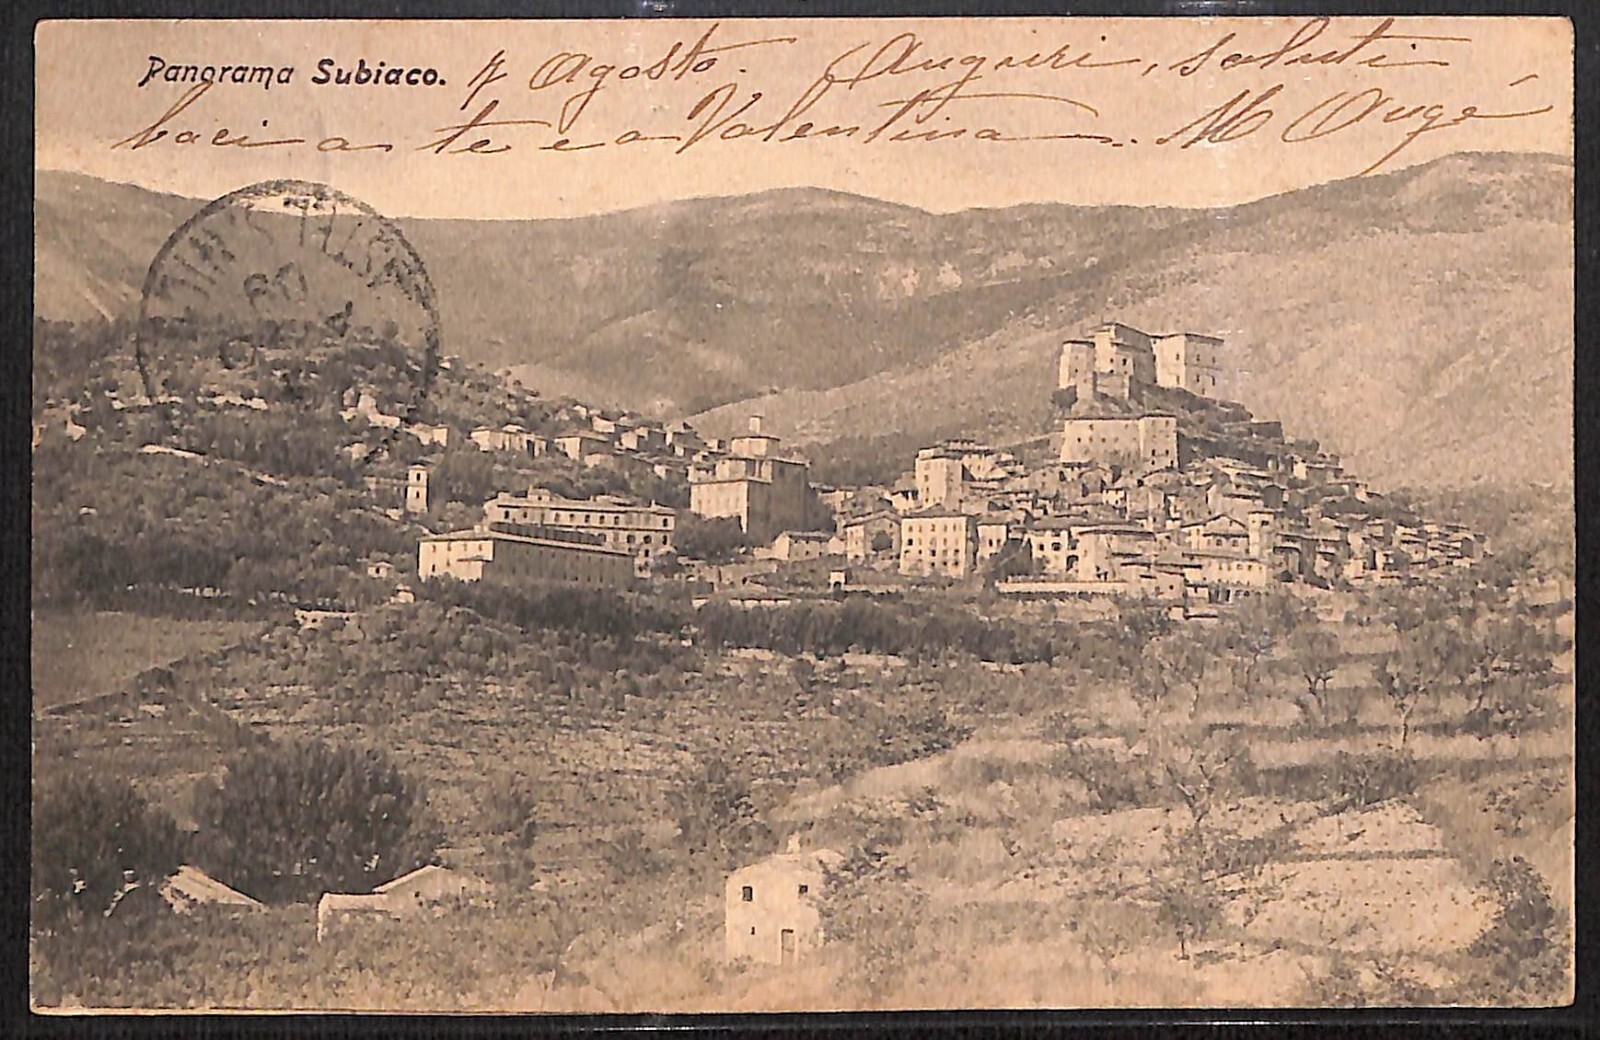 Panorama Subiaco. 7 Agosto. Auguri, saluti
baci a te e a Valentina. M Augé